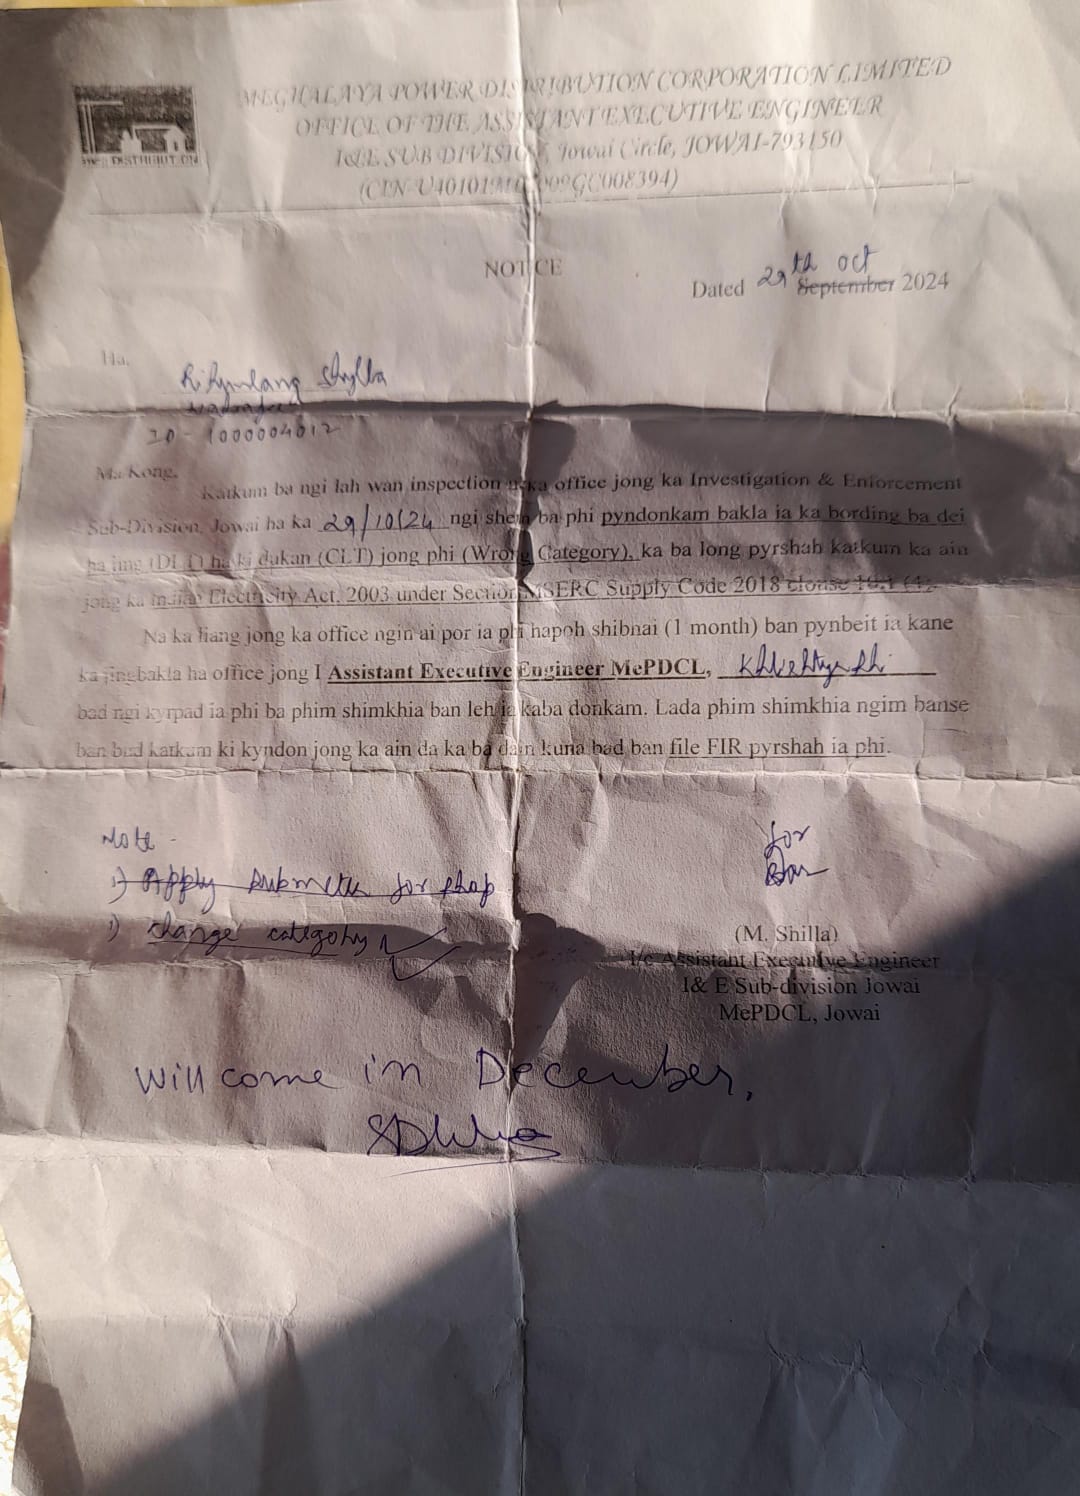 MEGHALAYA POWER DISTRIBUTION CORPORATION LIMITED
OFFICE OF THE ASSISTANT EXECUTIVE ENGINEER
I&E SUB DIVISION, Jowai Circle, JOWAI-793150
DISTRIBUTION
NOTICE
Dated 29th Oct September 2024
Ha,
Shylla
ID - 1000004012
Ma/Kong,
Katkum ba ngi lah wan inspection na ka office jong ka Investigation & Enforcement
Sub-Division, Jowai ha ka 29/10/24 ngi shem ba phi pyndonkam bakla ia ka bording ba dei
ha iing (DLT) ha ki dukan (CLT) jong phi (Wrong Category), ka ba long pyrshah katkum ka ain
jong ka Indian Electricity Act, 2003 under Section MSERC Supply Code 2018 clouse
Na ka liang jong ka office ngin ai por ia phi hapoh shibnai (1 month) ban pynbeit ia kane
ka jingbakla ha office jong I Assistant Executive Engineer MePDCL,
bad ngi kyrpad ia phi ba phim shimkhia ban leh ia kaba donkam. Lada phim shimkhia ngim banse
ban bud katkum ki kyndon jong ka ain da ka ba dain kuna bad ban file FIR pyrshah ia phi.
Note -
1) Apply submeter for shop
1) change category
for
(M. Shilla)
I/c Assistant Executive Engineer
I& E Sub-division Jowai
MePDCL, Jowai
Will come in December,